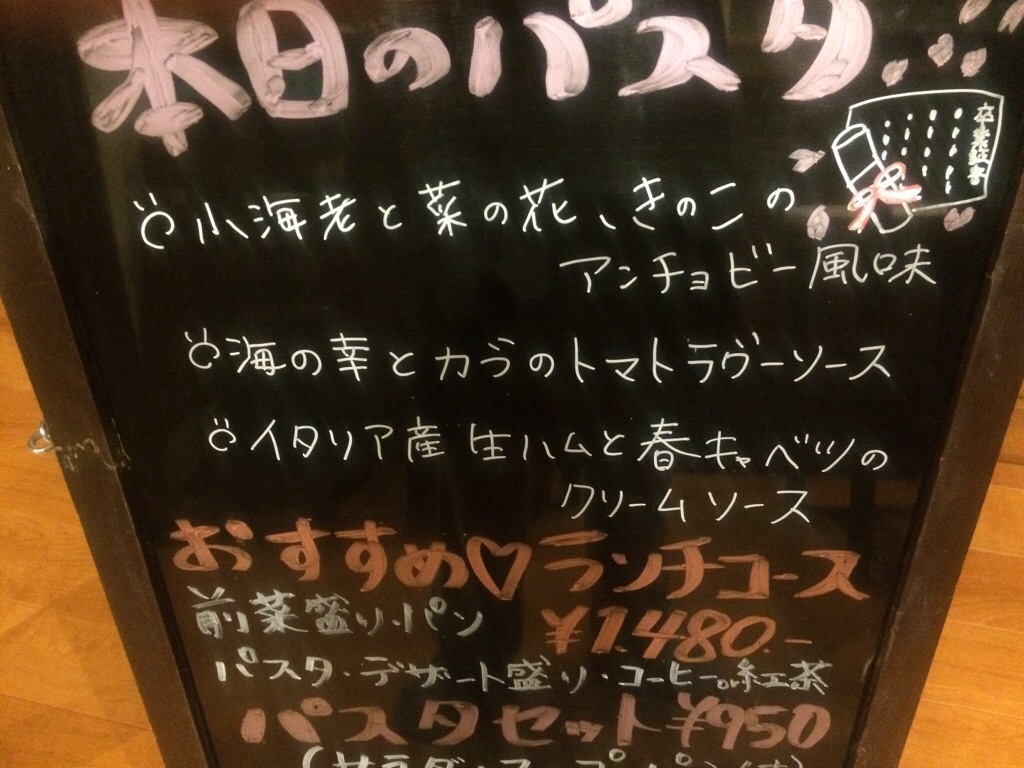 本日のパスタ
卒業証書
小海老と菜の花、きのこの
アンチョビー風味
海の幸とカブのトマトラヴーソース
イタリア産 生ハムと春キャベツの
クリームソース
おすすめ♡ランチコース
前菜盛り・パン ¥1.480.-
パスタ・デザート盛り・コーヒーor紅茶
パスタセット ¥950
(サラダ・スープ・パン付)